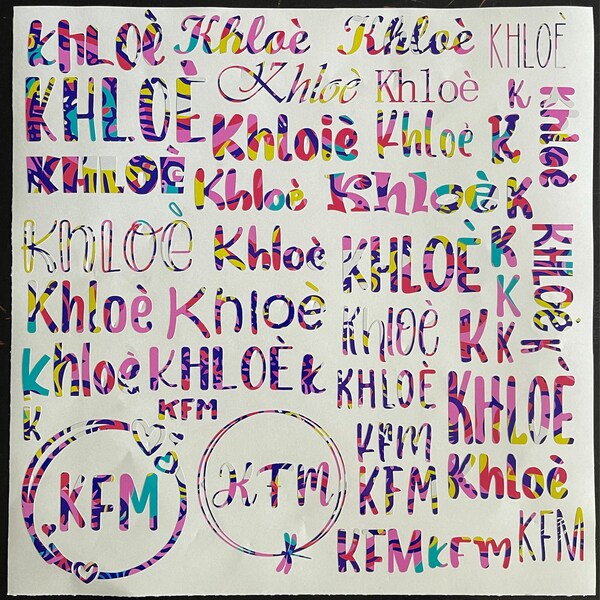 KhLOÈ Khloè Khloè KHLOÈ
Khloè Khloè K
KHLOÈ Khloiè Khloè K Khloè
KHLOÈ Khloè Khloè K
KhLOÈ Khloè KHLOÈ K KHLOÈ
K
Khloè Khloè Khloè K K K
Khloè KHLOÈ K KHLOÈ KHLOÈ
K KFM
KFM KFM KFM
KFM Khloè
KFM KFM KFM